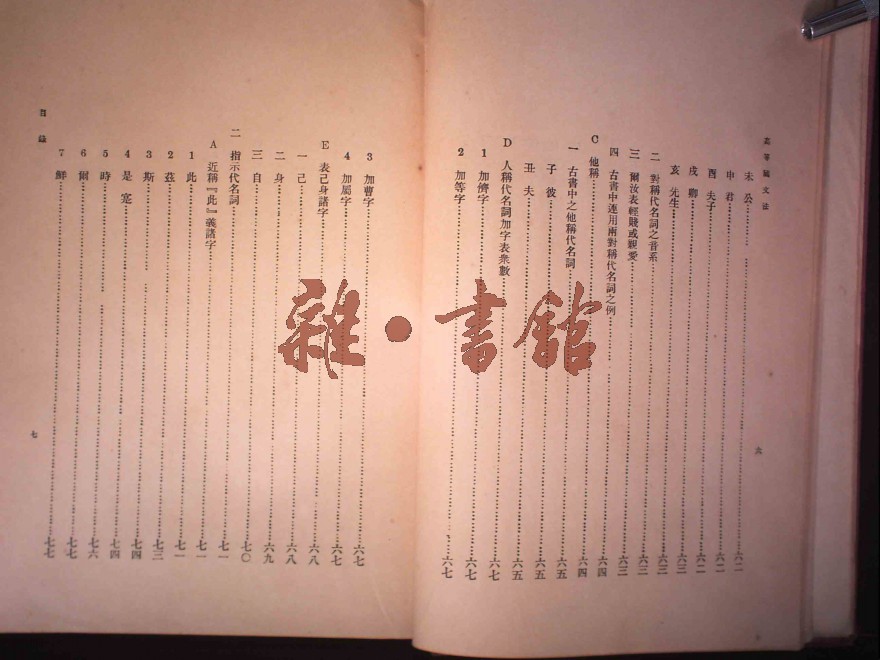 高等國文法
未 公 六二
申 君 六二
酉 夫子 六二
戌 卿 六二
亥 先生 六三
二 對稱代名詞之音系 六三
三 爾汝表輕賤或親愛 六三
四 古書中連用兩對稱代名詞之例 六三
C 他稱 六四
一 古書中之他稱代名詞 六四
子 彼 六五
丑 夫 六五
D 人稱代名詞加字表衆數 六五
1 加儕字 六七
2 加等字 六七
六
3 加曹字 六七
4 加屬字 六七
E 表己身諸字 六八
一 己 六八
二 身 六九
三 自 七〇
二 指示代名詞 七一
A 近稱『此』義諸字 七一
1 此 七一
2 茲 七一
3 斯 七三
4 是 寔 七四
5 時 七六
6 爾 七七
7 鮮 七七
目錄
七
雜·書館